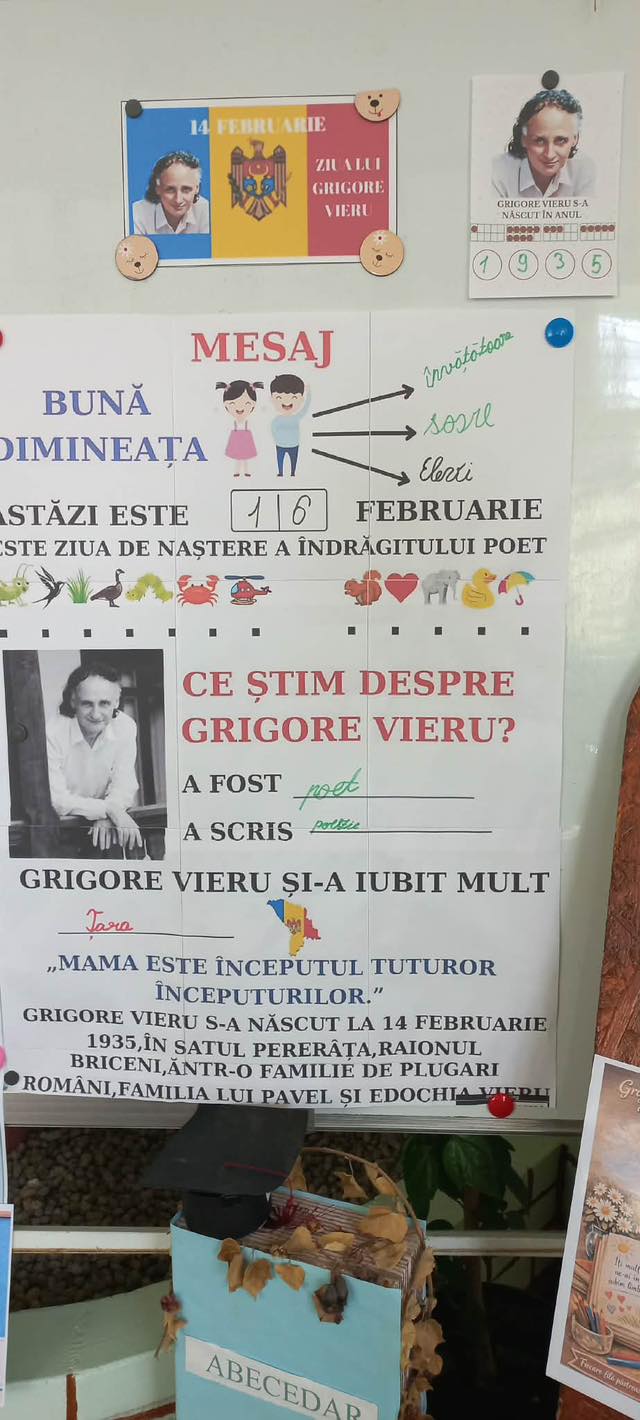 14 FEBRUARIE
ZIUA LUI
GRIGORE
VIERU
GRIGORE VIERU S-A
NĂSCUT ÎN ANUL
1 9 3 5
MESAJ
BUNĂ
DIMINEAȚA
învățătoare
soare
Elevi
ASTĂZI ESTE 16 FEBRUARIE
ESTE ZIUA DE NAȘTERE A ÎNDRĂGITULUI POET
CE ȘTIM DESPRE
GRIGORE VIERU?
A FOST poet
A SCRIS poezie
GRIGORE VIERU ȘI-A IUBIT MULT
Țara
„MAMA ESTE ÎNCEPUTUL TUTUROR
ÎNCEPUTURILOR.”
GRIGORE VIERU S-A NĂSCUT LA 14 FEBRUARIE
1935,ÎN SATUL PERERÂȚA,RAIONUL
BRICENI,ĂNTR-O FAMILIE DE PLUGARI
ROMÂNI,FAMILIA LUI PAVEL ȘI EDOCHIA VIERU
ABECEDAR